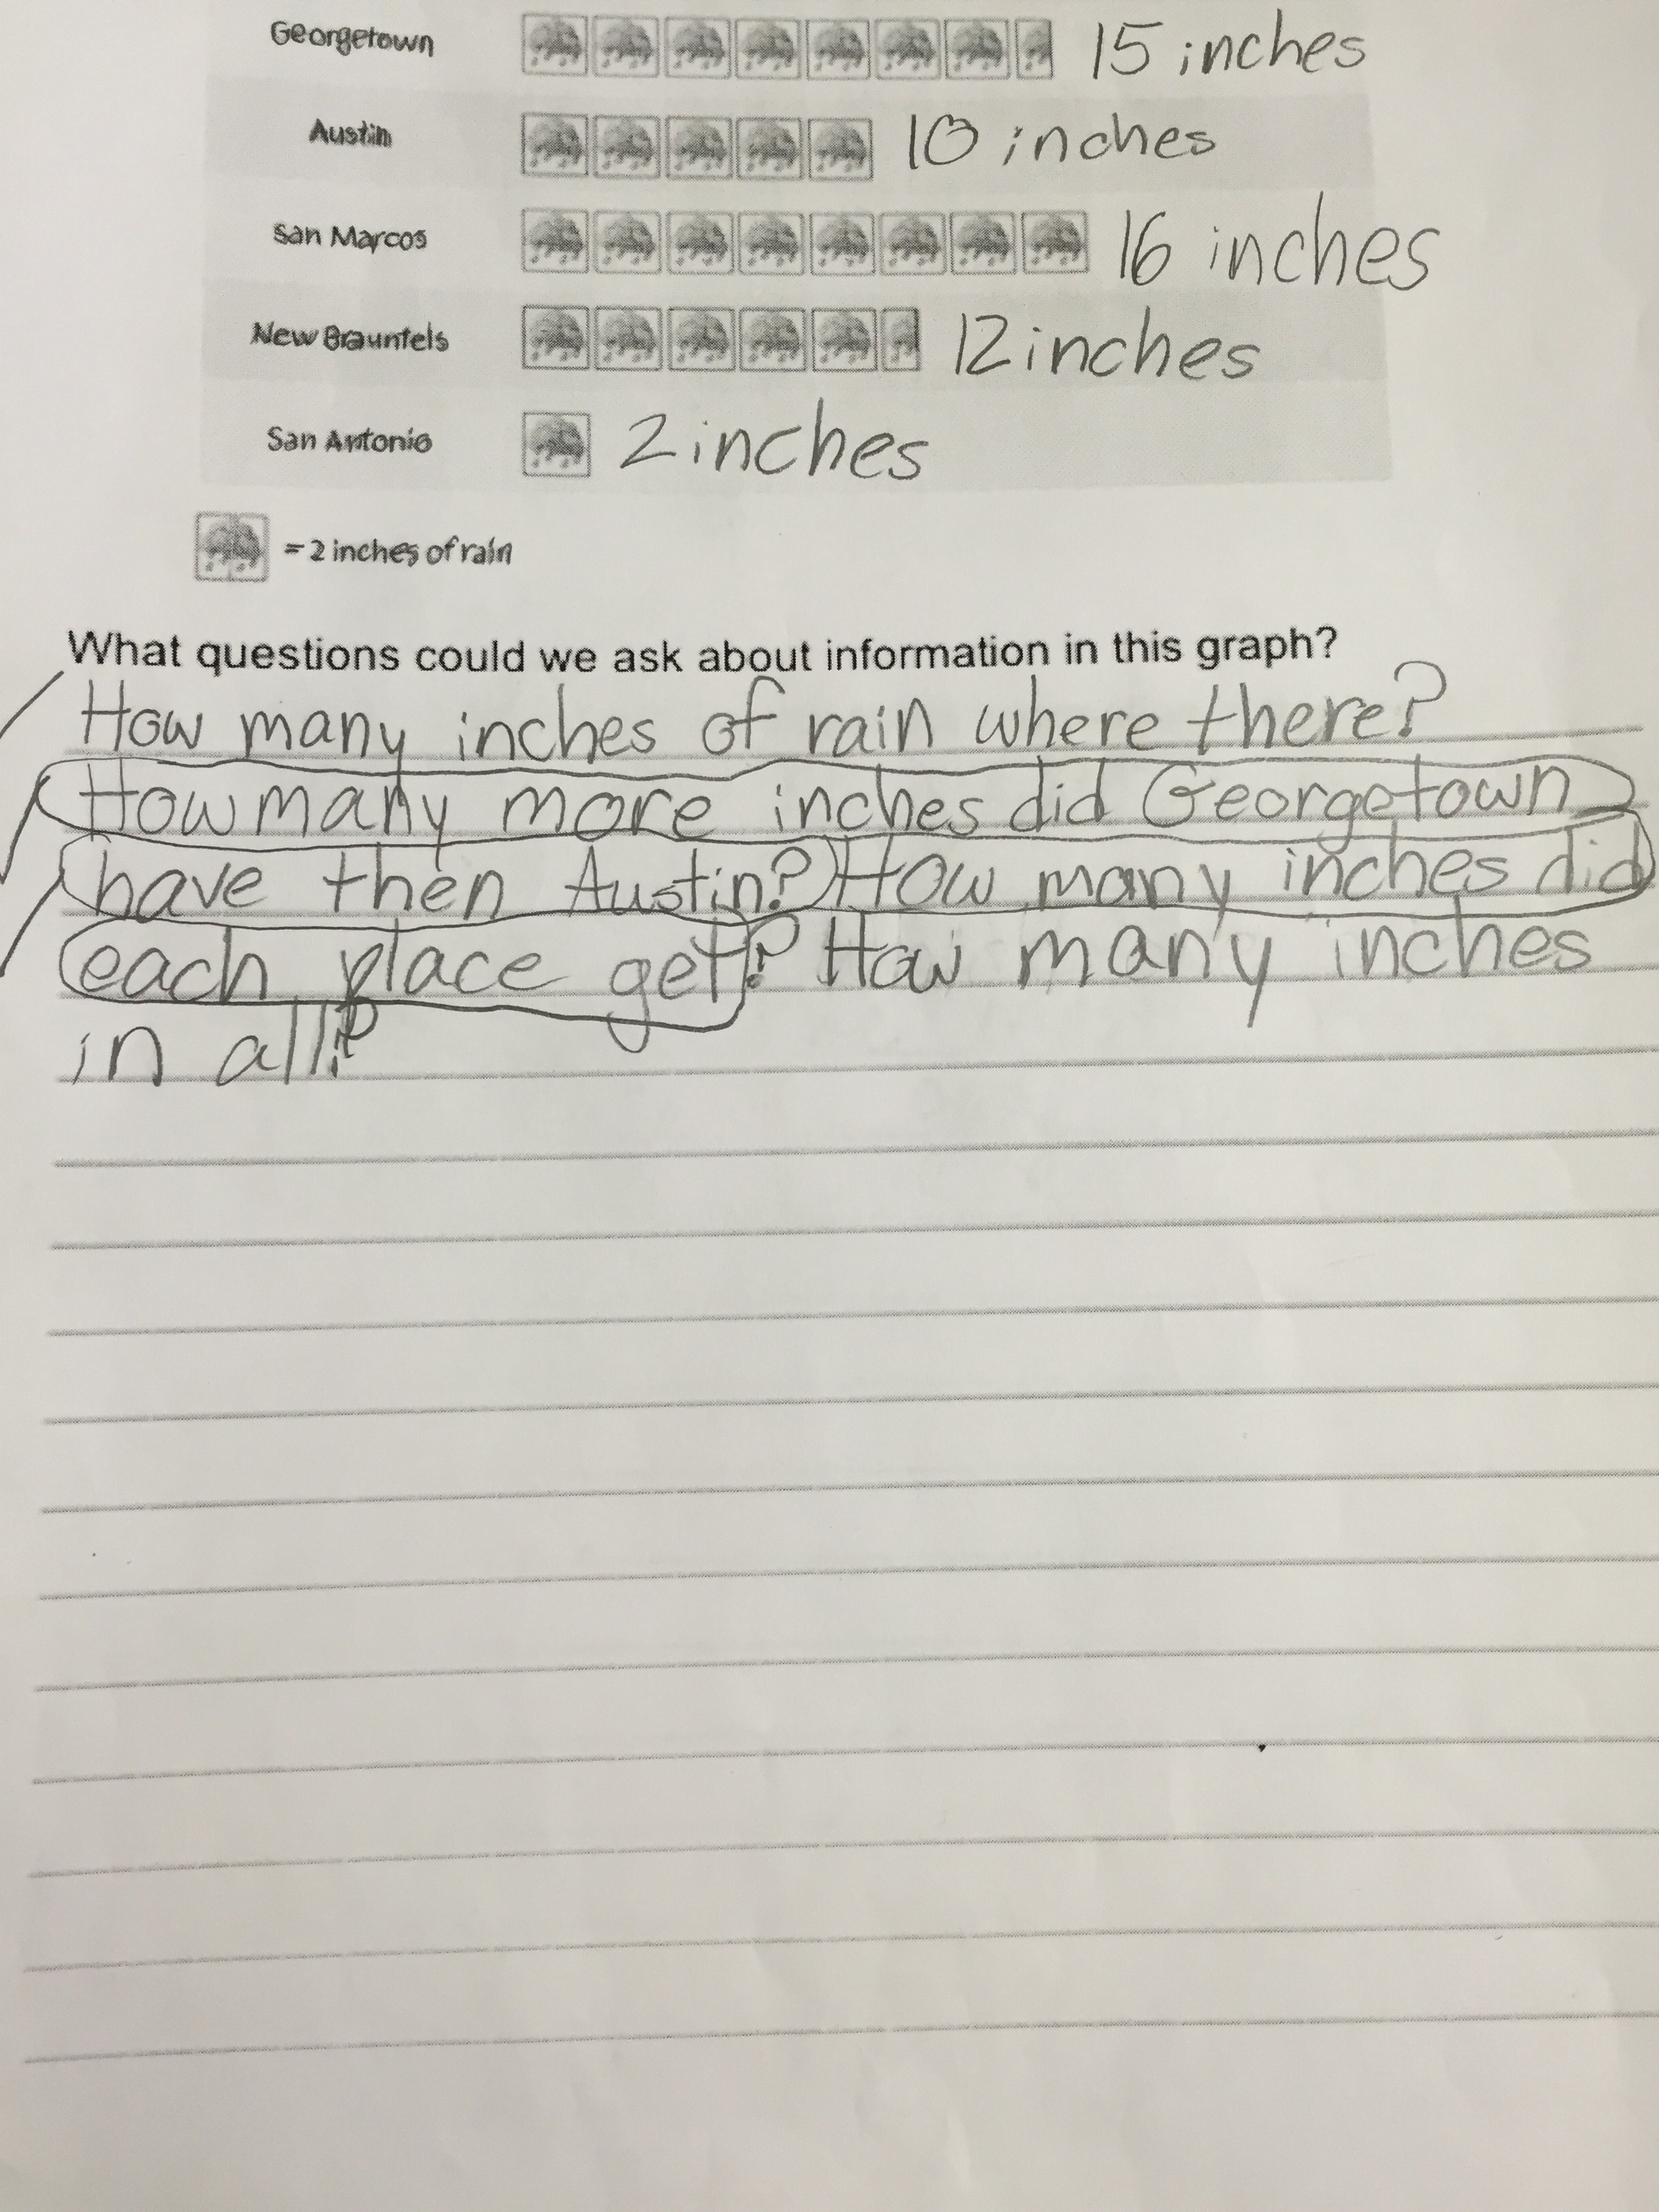 Georgetown 15 inches
Austin 10 inches
San Marcos 16 inches
New Braunfels 12 inches
San Antonio 2 inches
= 2 inches of rain
What questions could we ask about information in this graph?
How many inches of rain where there?
How many more inches did Georgetown
have then Austin? How many inches did
each place get? How many inches
in all?